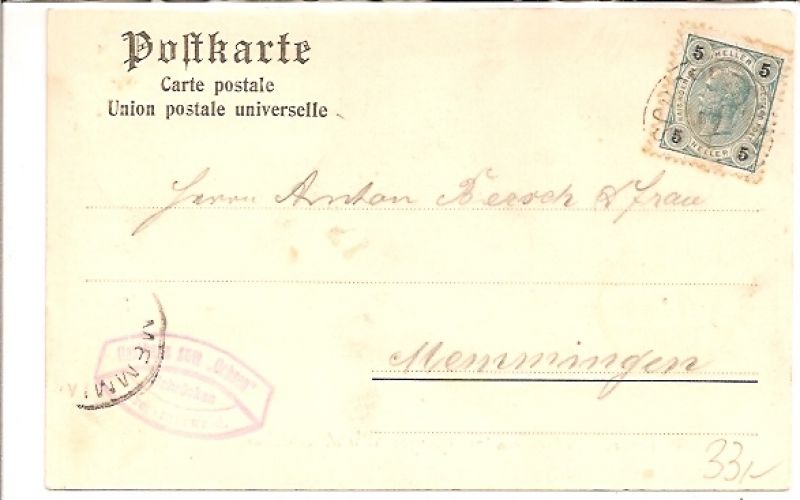 Postkarte
Carte postale
Union postale universelle
5 HELLER 5
5 HELLER 5
Herrn Anton Bersch & Frau
MEMMI
zum
Memmingen
33,-